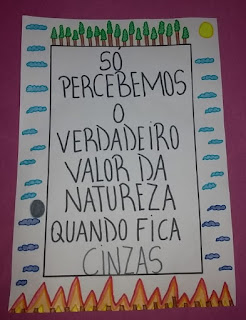 SÓ
PERCEBEMOS
O
VERDADEIRO
VALOR DA
NATUREZA
QUANDO FICA
CINZAS